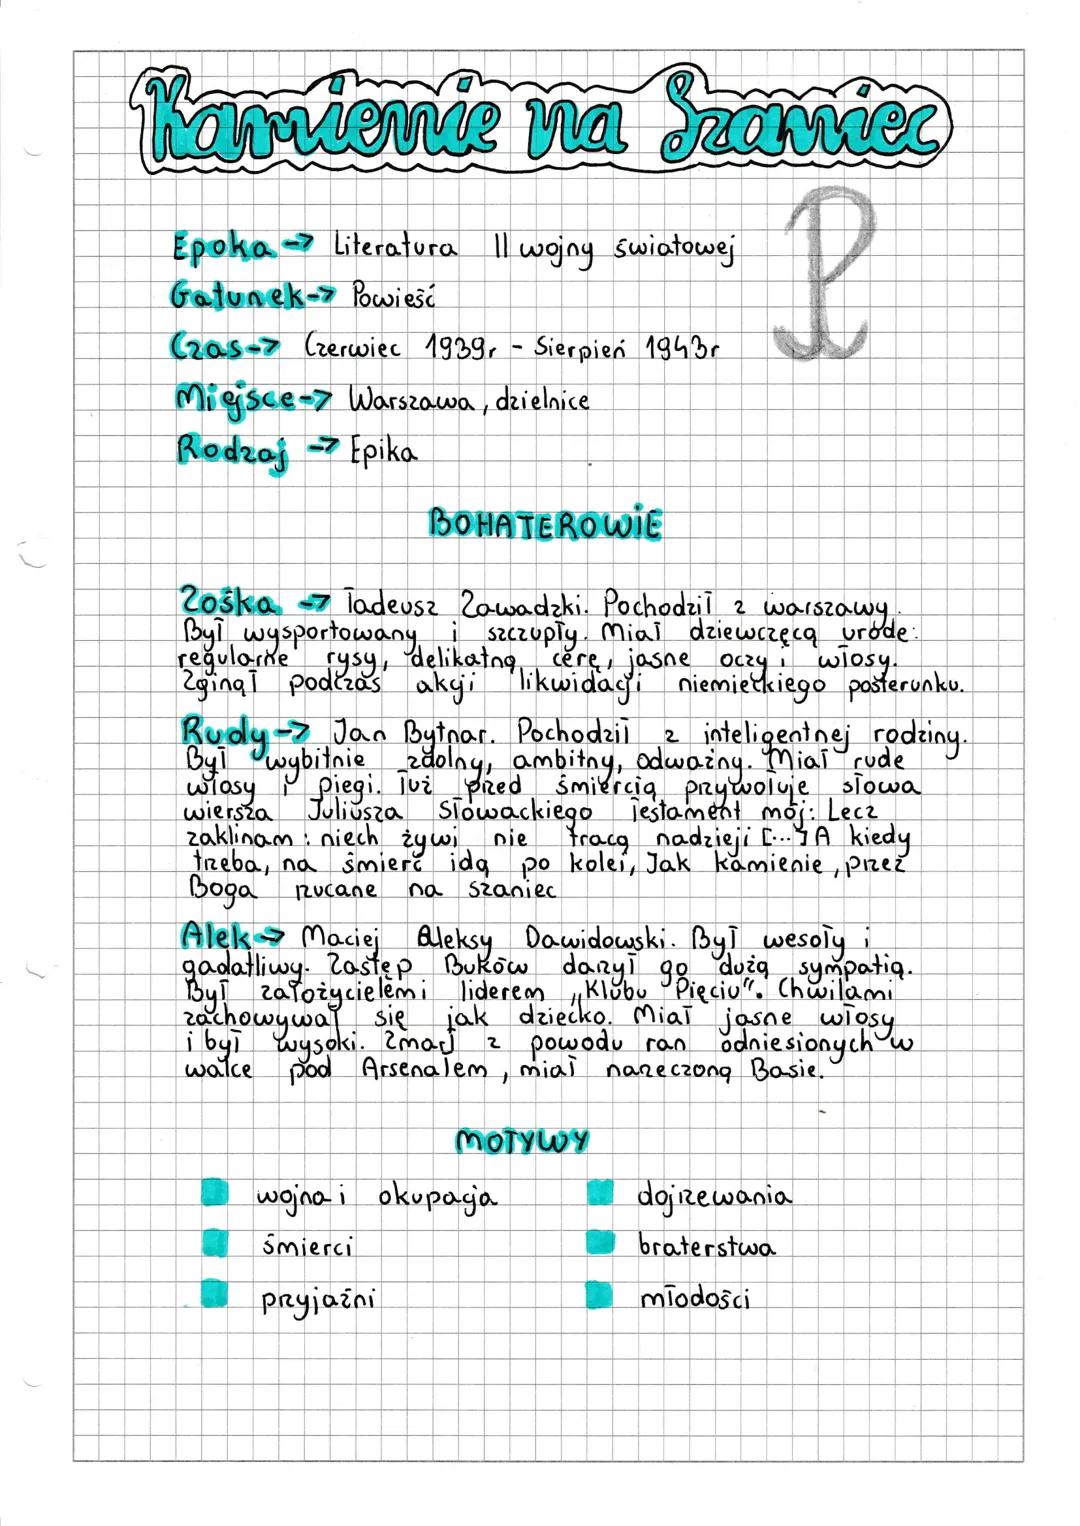 Kamienie na Szaniec
Epoka -> Literatura II wojny światowej
Gatunek-> Powieść
Czas-> Czerwiec 1939r - Sierpień 1943r
Miejsce-> Warszawa, dzielnice
Rodzaj -> Epika
BOHATEROWIE
Zośka -> Tadeusz Zawadzki. Pochodził z warszawy.
Był wysportowany i szczupły. Miał dziewczęcą urodę:
regularne rysy, delikatną cerę, jasne oczy i włosy.
Zginął podczas akcji likwidacji niemieckiego posterunku.
Rudy-> Jan Bytnar. Pochodził z inteligentnej rodziny.
Był wybitnie zdolny, ambitny, odważny. Miał rude
włosy i piegi. Tuż przed śmiercią przywołuje słowa
wiersza Juliusza Słowackiego Testament mój: Lecz
zaklinam: niech żywi nie tracą nadzieji [...] A kiedy
trzeba, na śmierć idą po kolei, Jak kamienie, przez
Boga rzucane na szaniec
Alek-> Maciej Aleksy Dawidowski. Był wesoły i
gadatliwy. Zastęp Buków darzył go dużą sympatią.
Był założycielem i liderem „Klubu Pięciu". Chwilami
zachowywał się jak dziecko. Miał jasne włosy
i był wysoki. Zmarł z powodu ran odniesionych w
walce pod Arsenałem, miał narzeczoną Basie.
MOTYWY
wojna i okupacja
dojrzewania
śmierci
braterstwa
przyjaźni
młodości